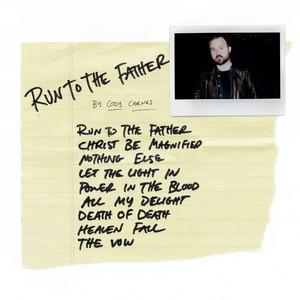 RUN TO THE FATHER
BY CODY CARNES
RUN TO THE FATHER
CHRIST BE MAGNIFIED
NOTHING ELSE
LET THE LIGHT IN
POWER IN THE BLOOD
ALL MY DELIGHT
DEATH OF DEATH
HEAVEN FALL
THE VOW